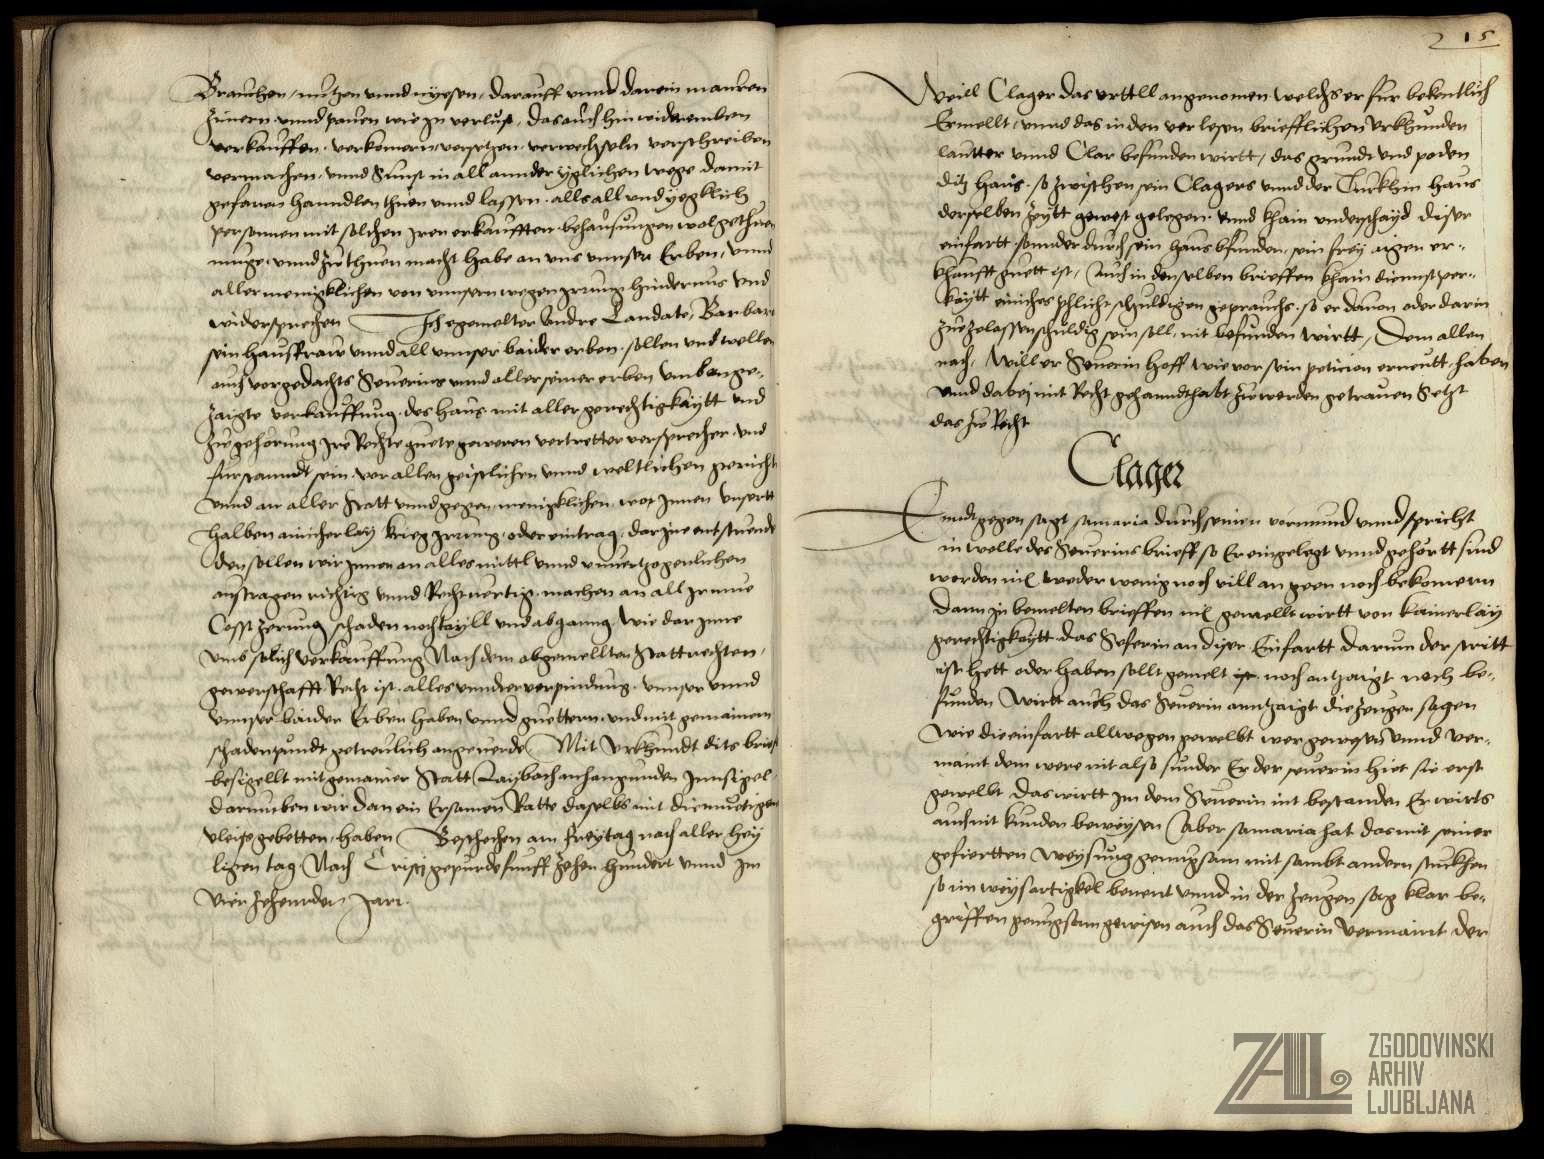 Brauchen, nutzen unnd nyesen, darauff unnd darein mauren
zimern unnd pauen wie in verlust, das auch hin wideremben
verkauffen, verkomern, versetzen, verwechseln verschreiben
vermachen, unnd sunst in all annder yglichen wege damit
gefaren hanndlen thuen unnd lassen, alls all und yegklich
personnen mit solchen iren erkaufften behausungen wol gethuen
muge, unnd zu thuen macht habe an uns unnser Erben, unnd
aller menigklichen von unnsern wegen irrung hindernus und
widersprechen Ich egemelter Andre Landate, Barbara
sein hausfraw unnd all unnser baider erben, sollen und wellen
auch vorgedachts Seuerins unnd aller seiner erben umb ange-
zaigte verkauffung, des haus mit aller gerechtigkaytt und
zugehorung ire Rechte guete geweren vertretter versprecher, und
furstanndt sein, vor allen geistlichen unnd weltlichen gericht
unnd an aller Statt unnd gegen menigklichen, wo innen unsertt
halben ainicherlay krieg irrung, oder eintrag, darine entstuende
den sollen wir innen an alles mittl unnd unvertzogenlichen
austragen richtig unnd Rechtvertig, machen an all ir mue
Cosst zerung schaden noch tayll und abganng, wie dar inne
umb solich verkauffung Nach dem obgemellten Stattrechten,
gewerschafft Recht ist, alles unnder verpindung, unnser unnd
unnser baider Erben haben unnd guettern, und mit gemainem
schadenpundt getreulich angeverde Mit Urkhundt dits brieff
besigellt mit gemainer Statt Laybach anhangunden Innsigel,
darumben wir dan ein Ersamen Ratte daselbs mit diemuetigen
vleiss gebetten, haben Beschechen am freytag nach aller hey
ligen tag Nach Cristi gepurde funff zehen hundert unnd im
vierzehennden Jarr.
215
Weill Clager das urttll angenomen welchs er fur bekentlich
Ermellt, unnd das in den verlesen briefflichen Urkhunden
lautter unnd Clar befunden wirtt, das grundt und poden
ditz haus, so zwischen sein Clagers unnd der Turkhin haus
derselben zeytt gewest gelegen, unnd khain underschayd diser
einfartt, sonnder durch sein haus bfunden, sein frey aigen er-
khaufft guett ist, Auch in denselben brieffen khain dienstper-
kaytt ainiches schlicht schuldigen geprauchs, so er davon oder darin
zue zelassen schuldig sein soll, nit befunden wirtt, Dem allen
nach, Will er Seuerin hoff wie vor sein peticion erneutt, haben
unnd dabej mit Recht gehanndthabt zuwerden getrauen Setzt
das zu Recht
Clager
Enndtgegen sagt samaria durch seinen vormund unnd spricht
in welle des Seuerins brieff so Er eingelegt unnd gehortt sind
worden nit weder wenig noch vill an geen noch bekomern
dann in bemelten brieffen nit gemellt wirtt von kainerlay
gerechtigkaytt, das Seferin an diser Einfartt darum der stritt
ist hett oder haben sollt gemelt ist noch antzaigt noch be-
funden Wirtt auch das Seuerin anntzaigt die zeugen sagen
wie die einfartt allwegen gewelbt wer gewesen unnd ver-
maint dem were nit also sunder Er der seuerin hiet sie erst
gewelbt, das wirtt im dem Seuerin nit bestanden Er wirts
auch nit kunden beweysen Aber samaria hat das mit seiner
gefiertten Weysung genugsam mit sambt andern stukhen
so im weysartigkel benent unnd in der zeugen sag klar be-
griffen genugsam gewisen auch das Seuerin vermaint der
ZAL
ZGODOVINSKI
ARHIV
LJUBLJANA